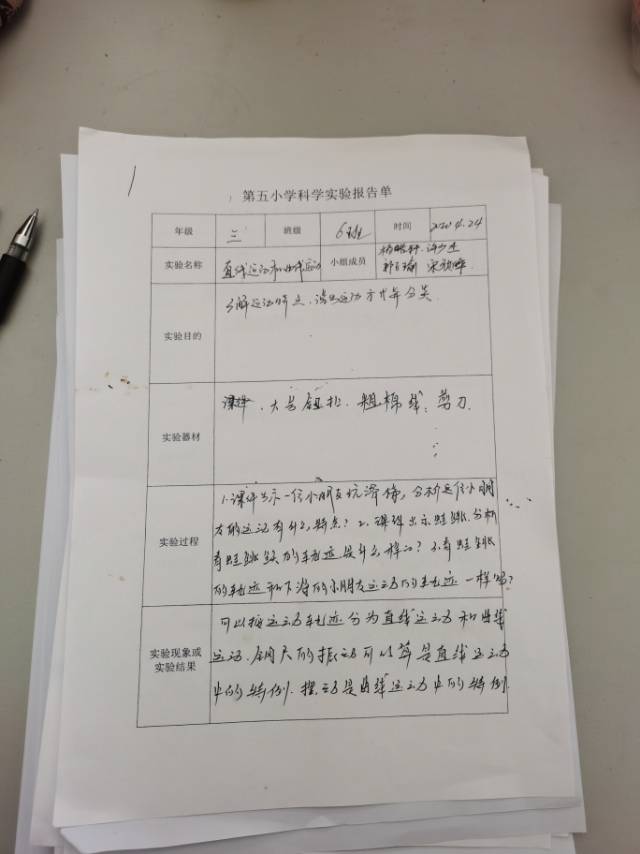 1
第五小学科学实验报告单
年级 三 班级 6班 时间 2020 4.24
实验名称 直线运动和曲线运动 小组成员
实验目的 了解运动特点、
实验器材 课件、大号钮扣、粗棉线、剪刀
实验过程 1.课件出示一位小朋友玩滑梯,分析这位小朋
友的运动有什么特点? 2.课件出示蛙跳,分析
青蛙跳跃的轨迹是什么样的? 3.青蛙跳
的轨迹和下滑的小朋友运动的轨迹一样吗?
实验现象或实验结果 可以按运动轨迹分为直线运动和曲线
运动.钢尺的振动可以算是直线运动
中的特例.摆动是曲线运动中的特例.